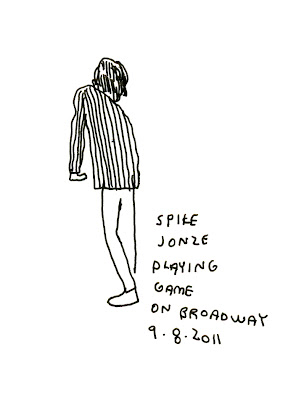 SPIKE
JONZE
PLAYING
GAME
ON BROADWAY
9.8.2011